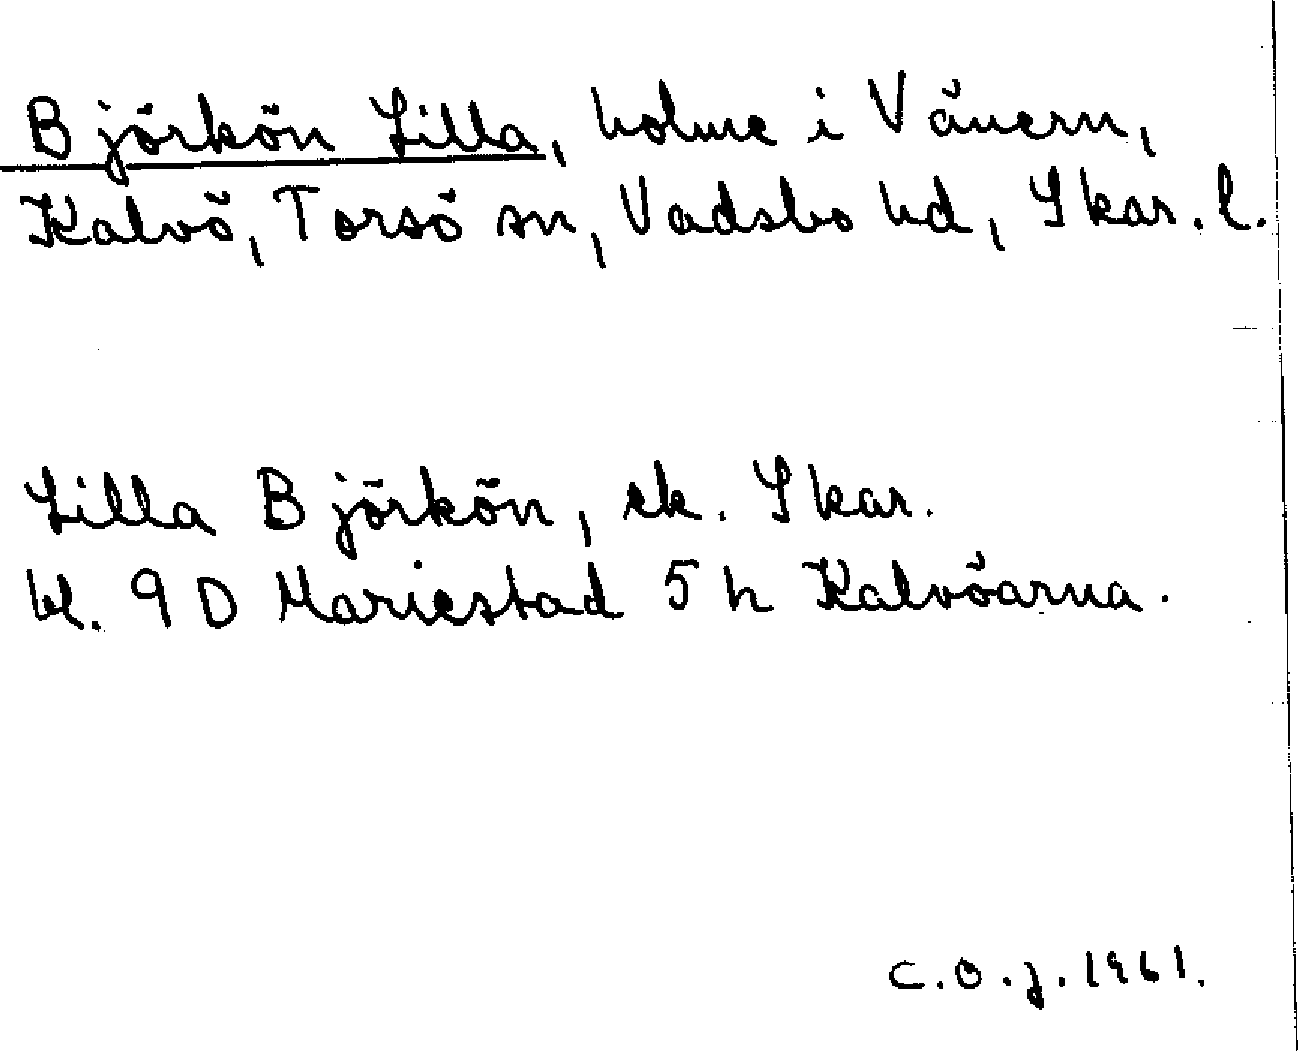 Björkön Lilla, holme i Vänern,
Kalvö, Torsö sn, Vadsbo hd, Skar. l.
Lilla Björkön, ek. Skar.
bl. 9 D Mariestad 5 h Kalvöarna.
C.O.J. 1961.